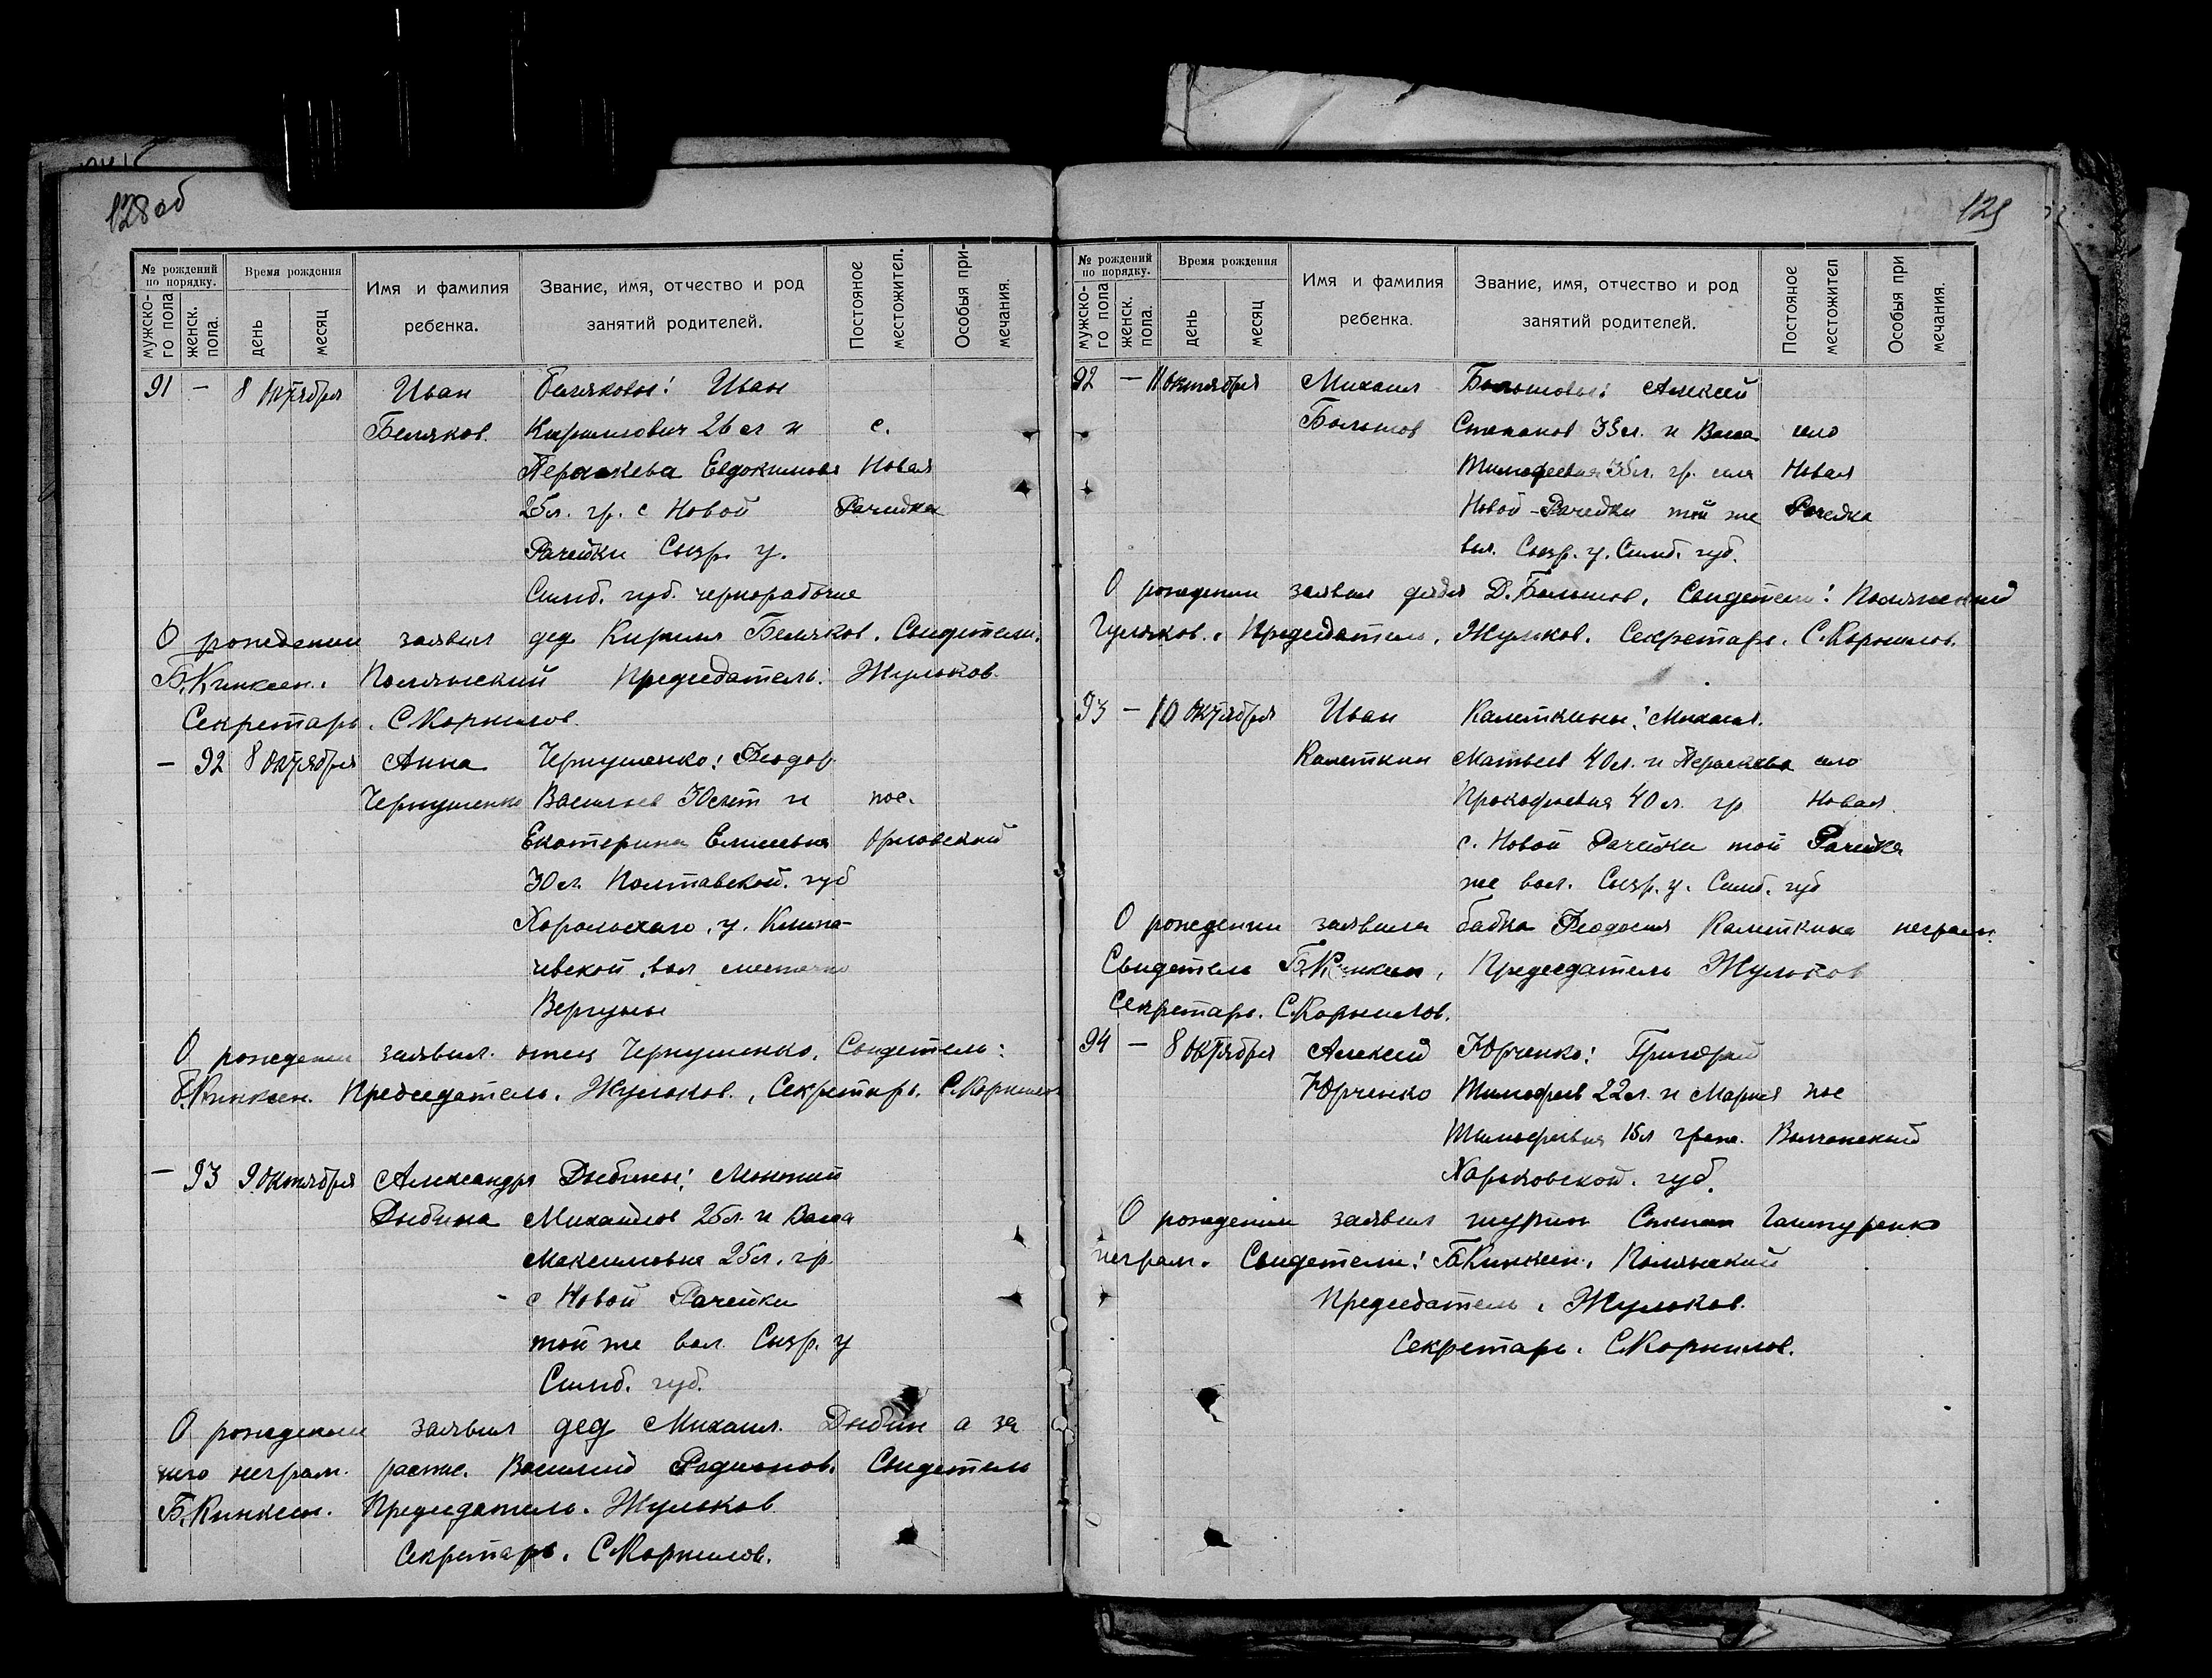 128об
№ рождений по порядку.
мужско-го пола
женск. пола.
Время рождения
день
месяц
Имя и фамилия ребенка.
Звание, имя, отчество и род занятий родителей.
Постояное местожител.
Особыя при-мечания.
91 — 8 октября Иван Беляковы: Иван
Беляков. Кириллович 26 л и с.
Параскева Евдокимова Новая
25 л. гр. с Новой Рачейка
Рачейки Сызр. у.
Симб. губ. чернорабочие
О рождении заявил дед Кирилл Беляков. Свидетели.
Б.Кинксен. Полянский Председатель: Жульков.
Секретарь. С.Корнилов.
— 92 8 октября Анна Чернушенко: Феодор
Чернушенко Васильев 30 лет и пос.
Екатерина Елисеевна Орловский
30 л. Полтавской. губ
Хорольскаго. у.
чевской, вол местечко
Вергуны
О рождении заявил. отец Чернушенко. Свидетель:
Б.Кинксен. Председатель. Жульков., Секретарь. С.Корнилов
— 93 9 октября Александра Дыбины:
Дыбина Михайлов 25 л. и Васса
Максимовна 25 л. гр.
с Новой Рачейки
той же вол. Сызр. у
Симб. губ.
О рождении заявил дед Михаил. Дыбин а за
него неграм. распис. Василий Родионов. Свидетель
Б.Кинксен. Председатель. Жульков
Секретарь. С.Корнилов.
129
№ рождений по порядку.
мужско-го пола
женск. пола.
Время рождения
день
месяц
Имя и фамилия ребенка.
Звание, имя, отчество и род занятий родителей.
Постояное местожител
Особыя при мечания.
92 — 11 октября Михаил Большовы: Алексей
Большов Степанов 35 л. и Васса село
Тимофеевна 35 л. гр. села Новая
Новой-Рачейки той же Рачейка
вол. Сызр. у. Симб. губ.
О рождении заявил дядя Д.Большов. Свидетели: Полянский
Гуляков.. Председатель. Жульков. Секретарь. С.Корнилов.
93 — 10 октября Иван Калеткины: Михаил.
Калеткин Матвеев 40 л. и Параскева село
Прокофьевна 40 л. гр Новая.
с. Новой Рачейки той Рачейка
же вол. Сызр. у. Симб. губ
О рождении заявила бабка Феодосия Калеткина неграм.
Свидетель Б.Кинксен, Председатель Жульков
Секретарь. С.Корнилов.
94 — 8 октября Алексей Юрченко: Григорий
Юрченко Тимофеев 22 л. и Мария пос
Тимофеевна 18 л Волчанский
Харьковской. губ.
О рождении заявил шурин Степан
неграм. Свидетели: Б.Кинксен. Полянский
Председатель. Жульков.
Секретарь. С.Корнилов.